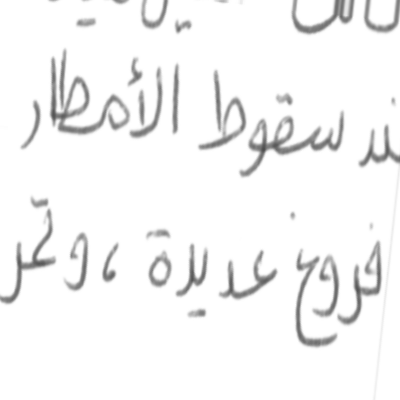 ند سقوط الأمطار
فروغ عديدة ، وتمر